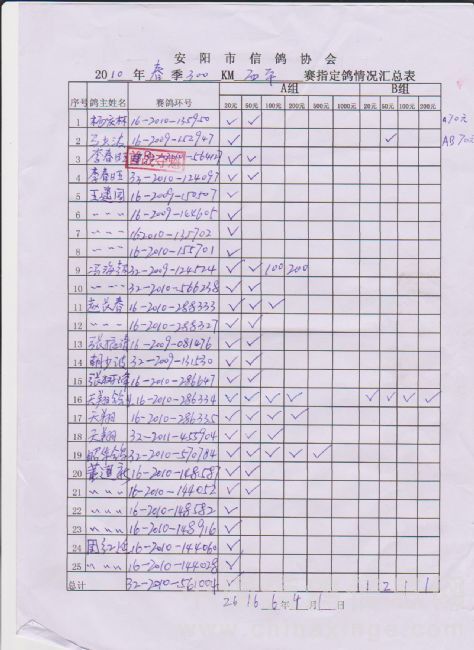 安阳市信鸽协会
2010年春季300KM西平 赛指定鸽情况汇总表
序号 鸽主姓名 赛鸽环号 A组 B组
20元 50元 100元 200元 500元 1000元 20元 50元 100元 200元
1 16-2010-135950 ✓ ✓ A70元
2 16-2009-152947 ✓ ✓ AB70元
3 李春旺 ✓ ✓
4 李春旺 32-2010-124097 ✓ ✓
5 16-2009-150507 ✓
6 〃 〃 〃 16-2009-164605 ✓
7 〃 〃 〃 162010-135702 ✓
8 〃 〃 〃 16-2010-155701 ✓
9 32-2009-124524 ✓ ✓ 100 200
10 〃 〃 〃 32-2010-566238 ✓ ✓
11 赵长春 16-2010-288333 ✓ ✓ ✓
12 〃 〃 〃 16-2010-288327 ✓ ✓
13 16-2009-081476 ✓ ✓
14 32-2009-131530 ✓ ✓
15 16-2010-286647 ✓ ✓
16 16-2010-286334 ✓ ✓ ✓ ✓ ✓ ✓ ✓ ✓
17 天翔 16-2010-286335 ✓ ✓ ✓ ✓
18 天翔 32-2011-455904 ✓ ✓ ✓
19 32-2010-570784 ✓ ✓ ✓ ✓ ✓
20 16-2010-148587 ✓ ✓
21 〃 〃 〃 16-2010-144052 ✓ ✓
22 〃 〃 〃 16-2010-148582 ✓
23 〃 〃 〃 16-2010-148916 ✓
24 16-2010-144060 ✓
25 〃 〃 〃 16-2010-144028 ✓
总计 32-2010-561004 ✓ 1 2 1 1
26 16 6 4 1
年 月 日
www.chinaxinge.com